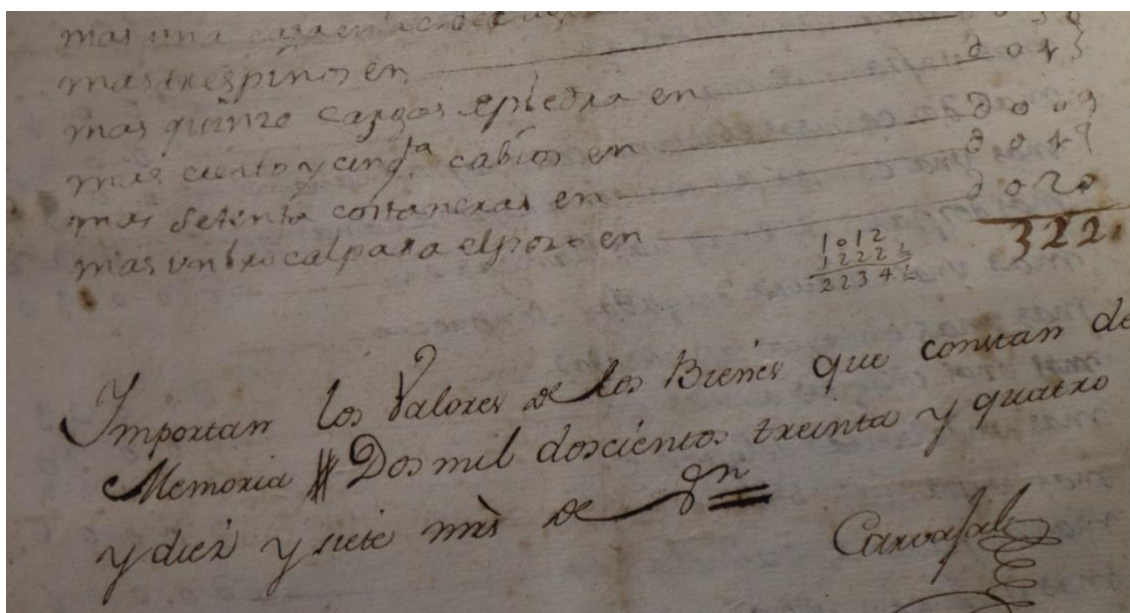 mas una casa en
mas tres pinos en
mas quinze cargas e piedra en d 0 1 5
mas ciento y cinq.ta cabios en d 0 0 9
mas setenta costaneras en
mas un brocal para el pozo en d 0 2 0
322.
1012
1222 ½
2234 ½
Importan los Valores de los Bienes que constan de
Memoria Dos mil doscientos treinta y quatro
y diez y siete mrs de Vn
Carvajal